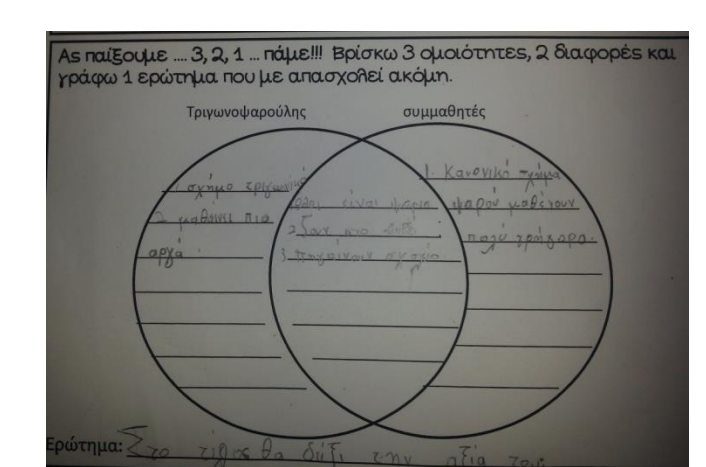 Ας παίξουμε .... 3, 2, 1 ... πάμε!!! Βρίσκω 3 ομοιότητες, 2 διαφορές και
γράφω 1 ερώτημα που με απασχολεί ακόμη.
Τριγωνοψαρούλης
συμμαθητές
1 σχήμα τριγωνικό
2 μαθαίνει πιο
αργά
είναι ψάρια
2 Ζουν στο
3 πηγαίνουν σχολείο
1. Κανονικό σχήμα
ψαριού μαθένουν
πολύ γρήγορα.
Ερώτημα: Στο τέλος θα δίξι την αξία του